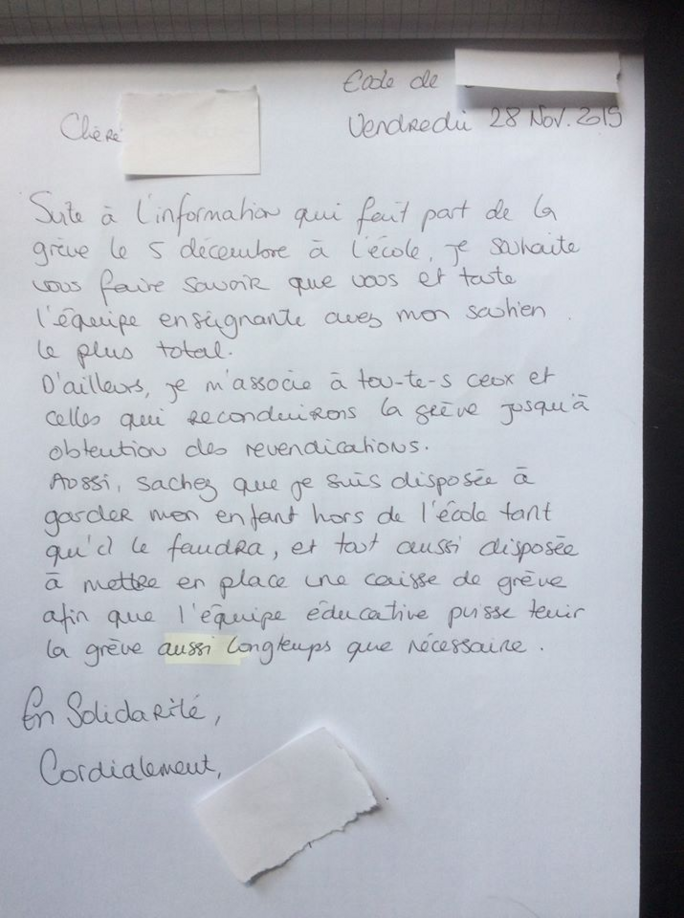 École de
Vendredi 28 Nov. 2019
Chère
Suite à l'information qui fait part de la
grève le 5 décembre à l'école, je souhaite
vous faire savoir que vous et toute
l'équipe enseignante avez mon soutien
le plus total.
D'ailleurs, je m'associe à tou-te-s ceux et
celles qui reconduirons la grève jusqu'à
obtention des revendications.
Aussi, sachez que je suis disposée à
garder mon enfant hors de l'école tant
qu'il le faudra, et tout aussi disposée
à mettre en place une caisse de grève
afin que l'équipe éducative puisse tenir
la grève aussi longtemps que nécessaire.
En Solidarité,
Cordialement,